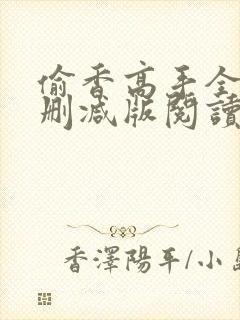 偷香高手全
删减版閱讀
香澤陽平/小島